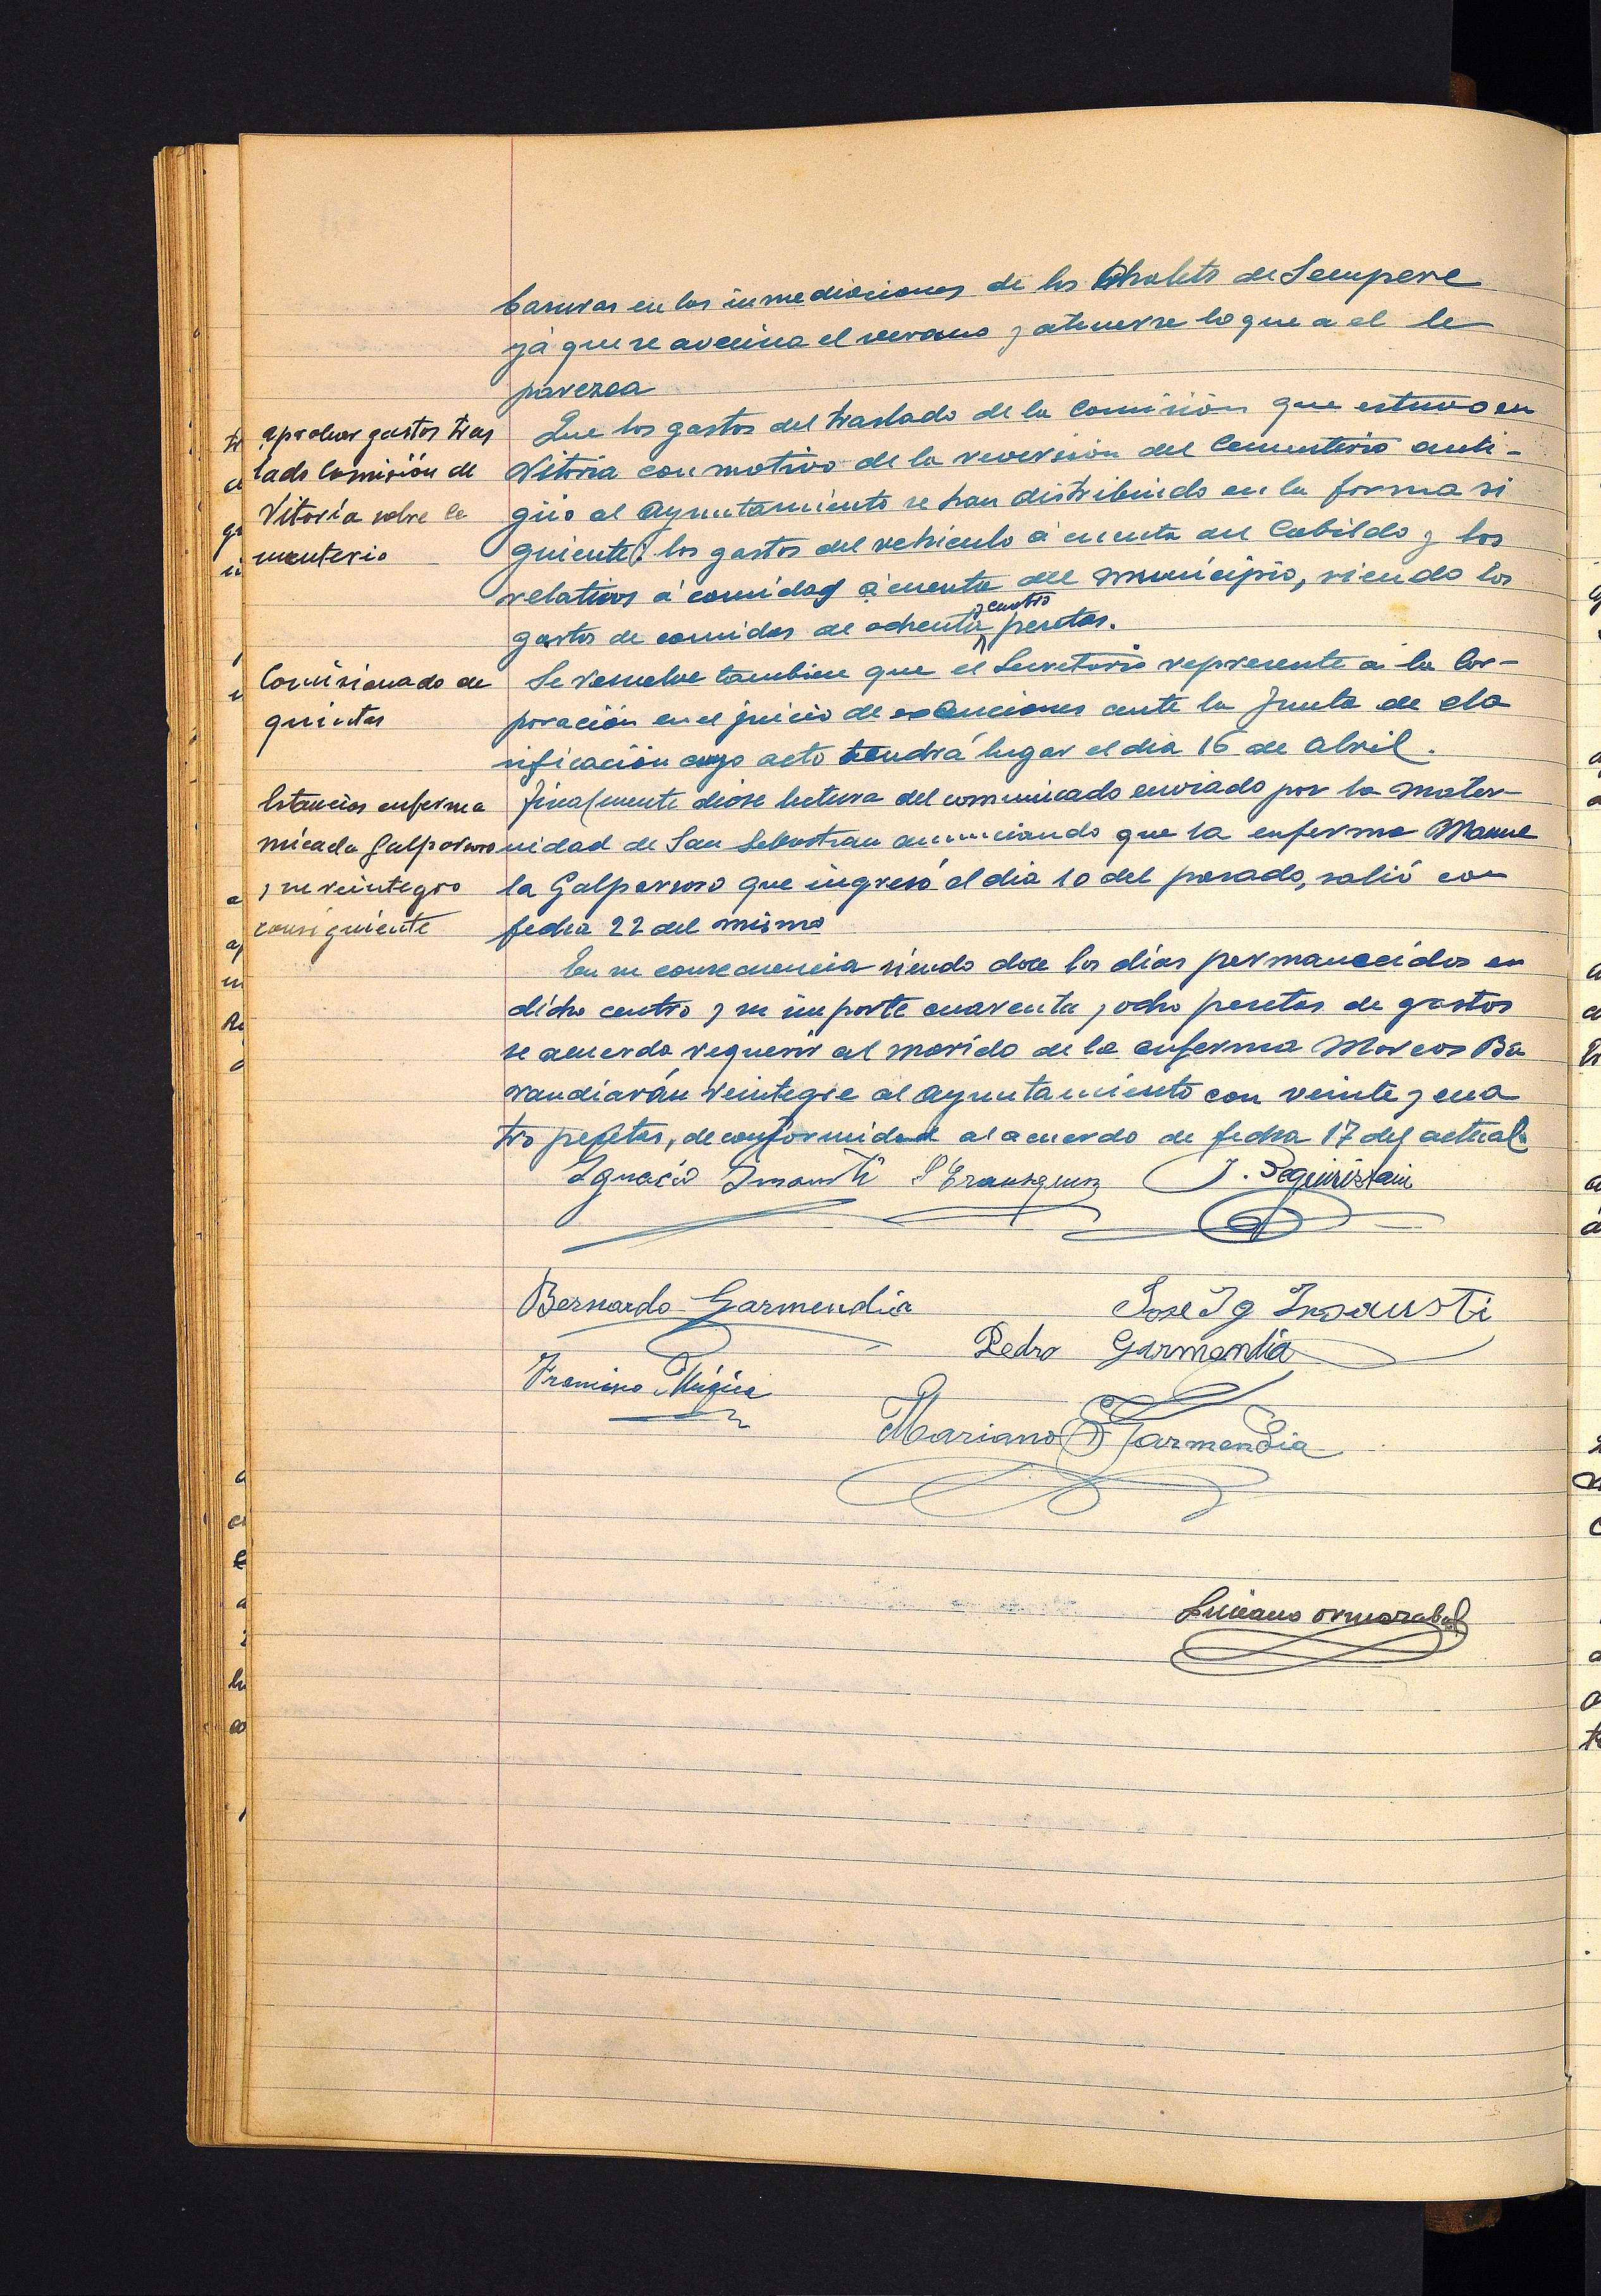 basuras en las inmediaciones de los Chalets de Sempere
yá que se avecina el verano y atenerse lo que a el le
parezca
aprobar gastos tras
lado Comisión de
Vitoria sobre Ce
menterio
Que los gastos del traslado de la Comisión que estuvo en
Vitoria con motivo de la reversión del Cementerio anti-
güo al Ayuntamiento se han distribuido en la forma si
guiente: los gastos del vehiculo á cuenta del Cabildo y los
relativos á comidas á cuenta del Municipio, siendo los
gastos de comidas de ochenta y cuatro pesetas.
Comisionado de
quintas
Se resuelve tambien que el Secretario represente á la Cor-
poración en el juicio de exenciones ante la Junta de cla
sificación cuyo acto tendrá lugar el dia 16 de Abril.
Estancias enferma
micaela Galparsoro
y su reintegro
consiguiente
Finalmente diose lectura del comunicado enviado por la Mater-
nidad de San Sebastian anunciando que la enferma Manue
la Galparsoro que ingresó el dia 10 del pasado, salió con
fecha 22 del mismo
En su consecuencia siendo doce los días permanecidos en
dicho centro y su importe cuarenta y ocho pesetas de gastos
se acuerda requerir al marido de la enferma Marcos Ba
randiarán reintegre al Ayuntamiento con veinte y cua
tro pesetas, de conformidad al acuerdo de fecha 17 del actual.
Ignacio Insausti J. Yeguiristain
Bernardo Garmendia José Ig Insausti
Pedro Garmendia
Francisco Múgica
Mariano Garmendia
Luciano Ormazabal